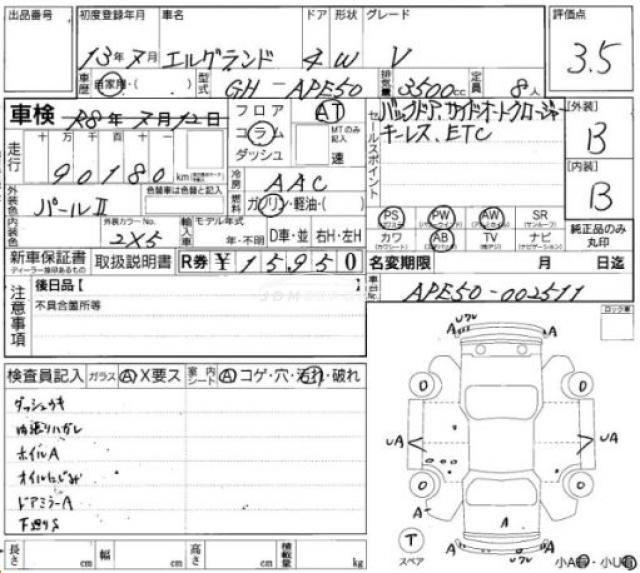 出品番号 初度登録年月 車名 ドア 形状 グレード 評価点
13年7月 エルグランド 4 W V 3.5
車歴 自家用・( ) 型式 GH-APE50 排気量 3500cc 定員 8人
車検 R8年7月12日 フロア コラム ダッシュ AT MTのみ記入 速
セールスポイント バックドア、サイドオートクロージャー
キーレス、ETC
[外装] B
走行 十万千百十一 90180km
冷房 AAC
[内装] B
外装色 パールII 色替車は色替と記入 燃料 ガソリン・軽油・( )
PS PW AW SR (サンルーフ) 純正品のみ丸印
内装色 外装カラーNo. 2X5 輸入車 モデル年式 年・不明 D車・並 右H・左H
カワ (カワシート) AB TV ナビ (ナビゲーション)
新車保証書 ディーラー捺印あるもの 取扱説明書 R券 ¥15950 名変期限 月 日迄
注意事項 後日品[ ] 車台No. APE50-002511
不具合箇所等
ロック車
検査員記入 ガラス A X要ス 室内シート A コゲ・穴・汚れ・破れ
ダッシュウキ
内張りハガレ
ホイルA
オイルにじみ
ドアミラーA
下廻りS
Uワレ
A A
0 0
UA UA
0 0
A A
A
T スペア A A
Uワレ
小A・小U
長さ cm 幅 cm 高さ cm 積載量 kg